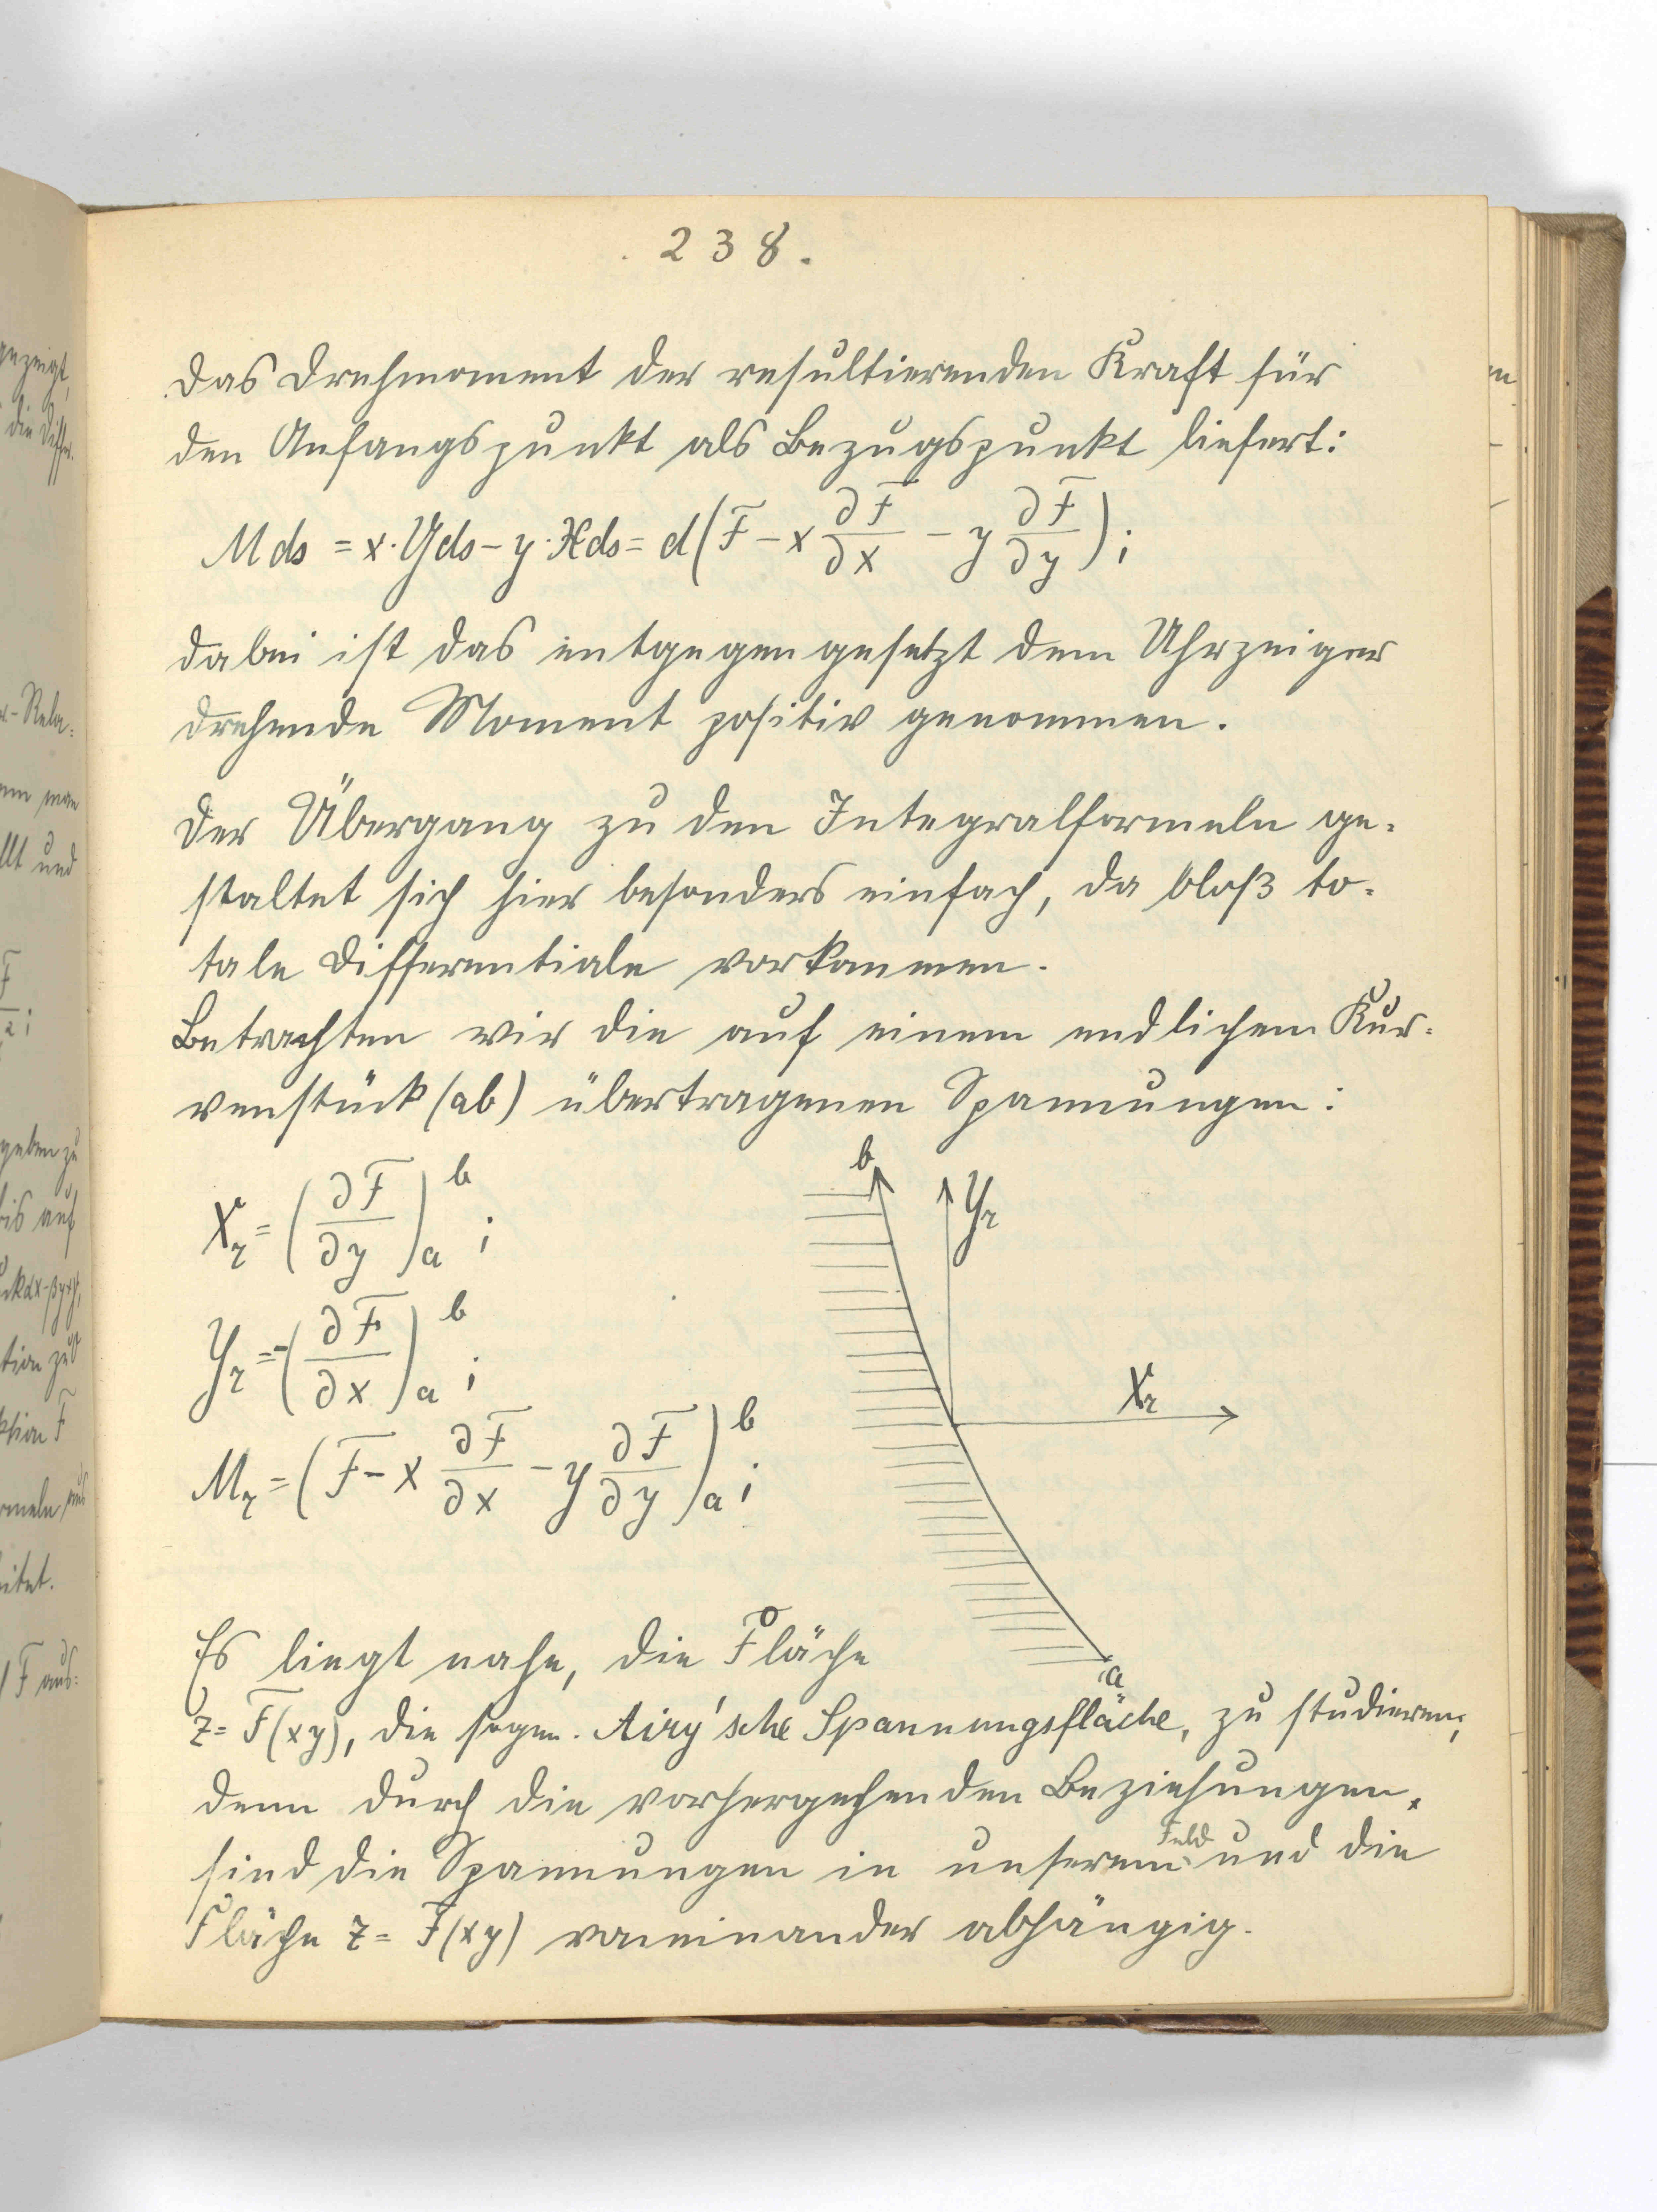 . 238.
Das Drehmoment der resultierenden Kraft für
den Anfangspunkt als Bezugspunkt liefert:
M ds = x·Yds − y·Xds = d(F − x ∂F/∂x − y ∂F/∂y);
dabei ist das entgegengesetzt dem Uhrzeiger
drehende Moment positiv genommen.
Der Übergang zu den Integralformeln ge-
staltet sich hier besonders einfach, da bloß to-
tale Differentiale vorkommen.
Betrachten wir die auf einem endlichem Kur-
venstück (ab) übertragenen Spannungen:
X_r = (∂F/∂y)_a^b ;
Y_r = −(∂F/∂x)_a^b ;
M_r = (F − x ∂F/∂x − y ∂F/∂y)_a^b ;
b
Y_r
X_r
a
Es liegt nahe, die Fläche
z = F(xy), die sogen. Airy'sche Spannungsfläche, zu studieren;
denn durch die vorhergehenden Beziehungen
sind die Spannungen in unserem Feld und die
Fläche z = F(xy) voneinander abhängig.